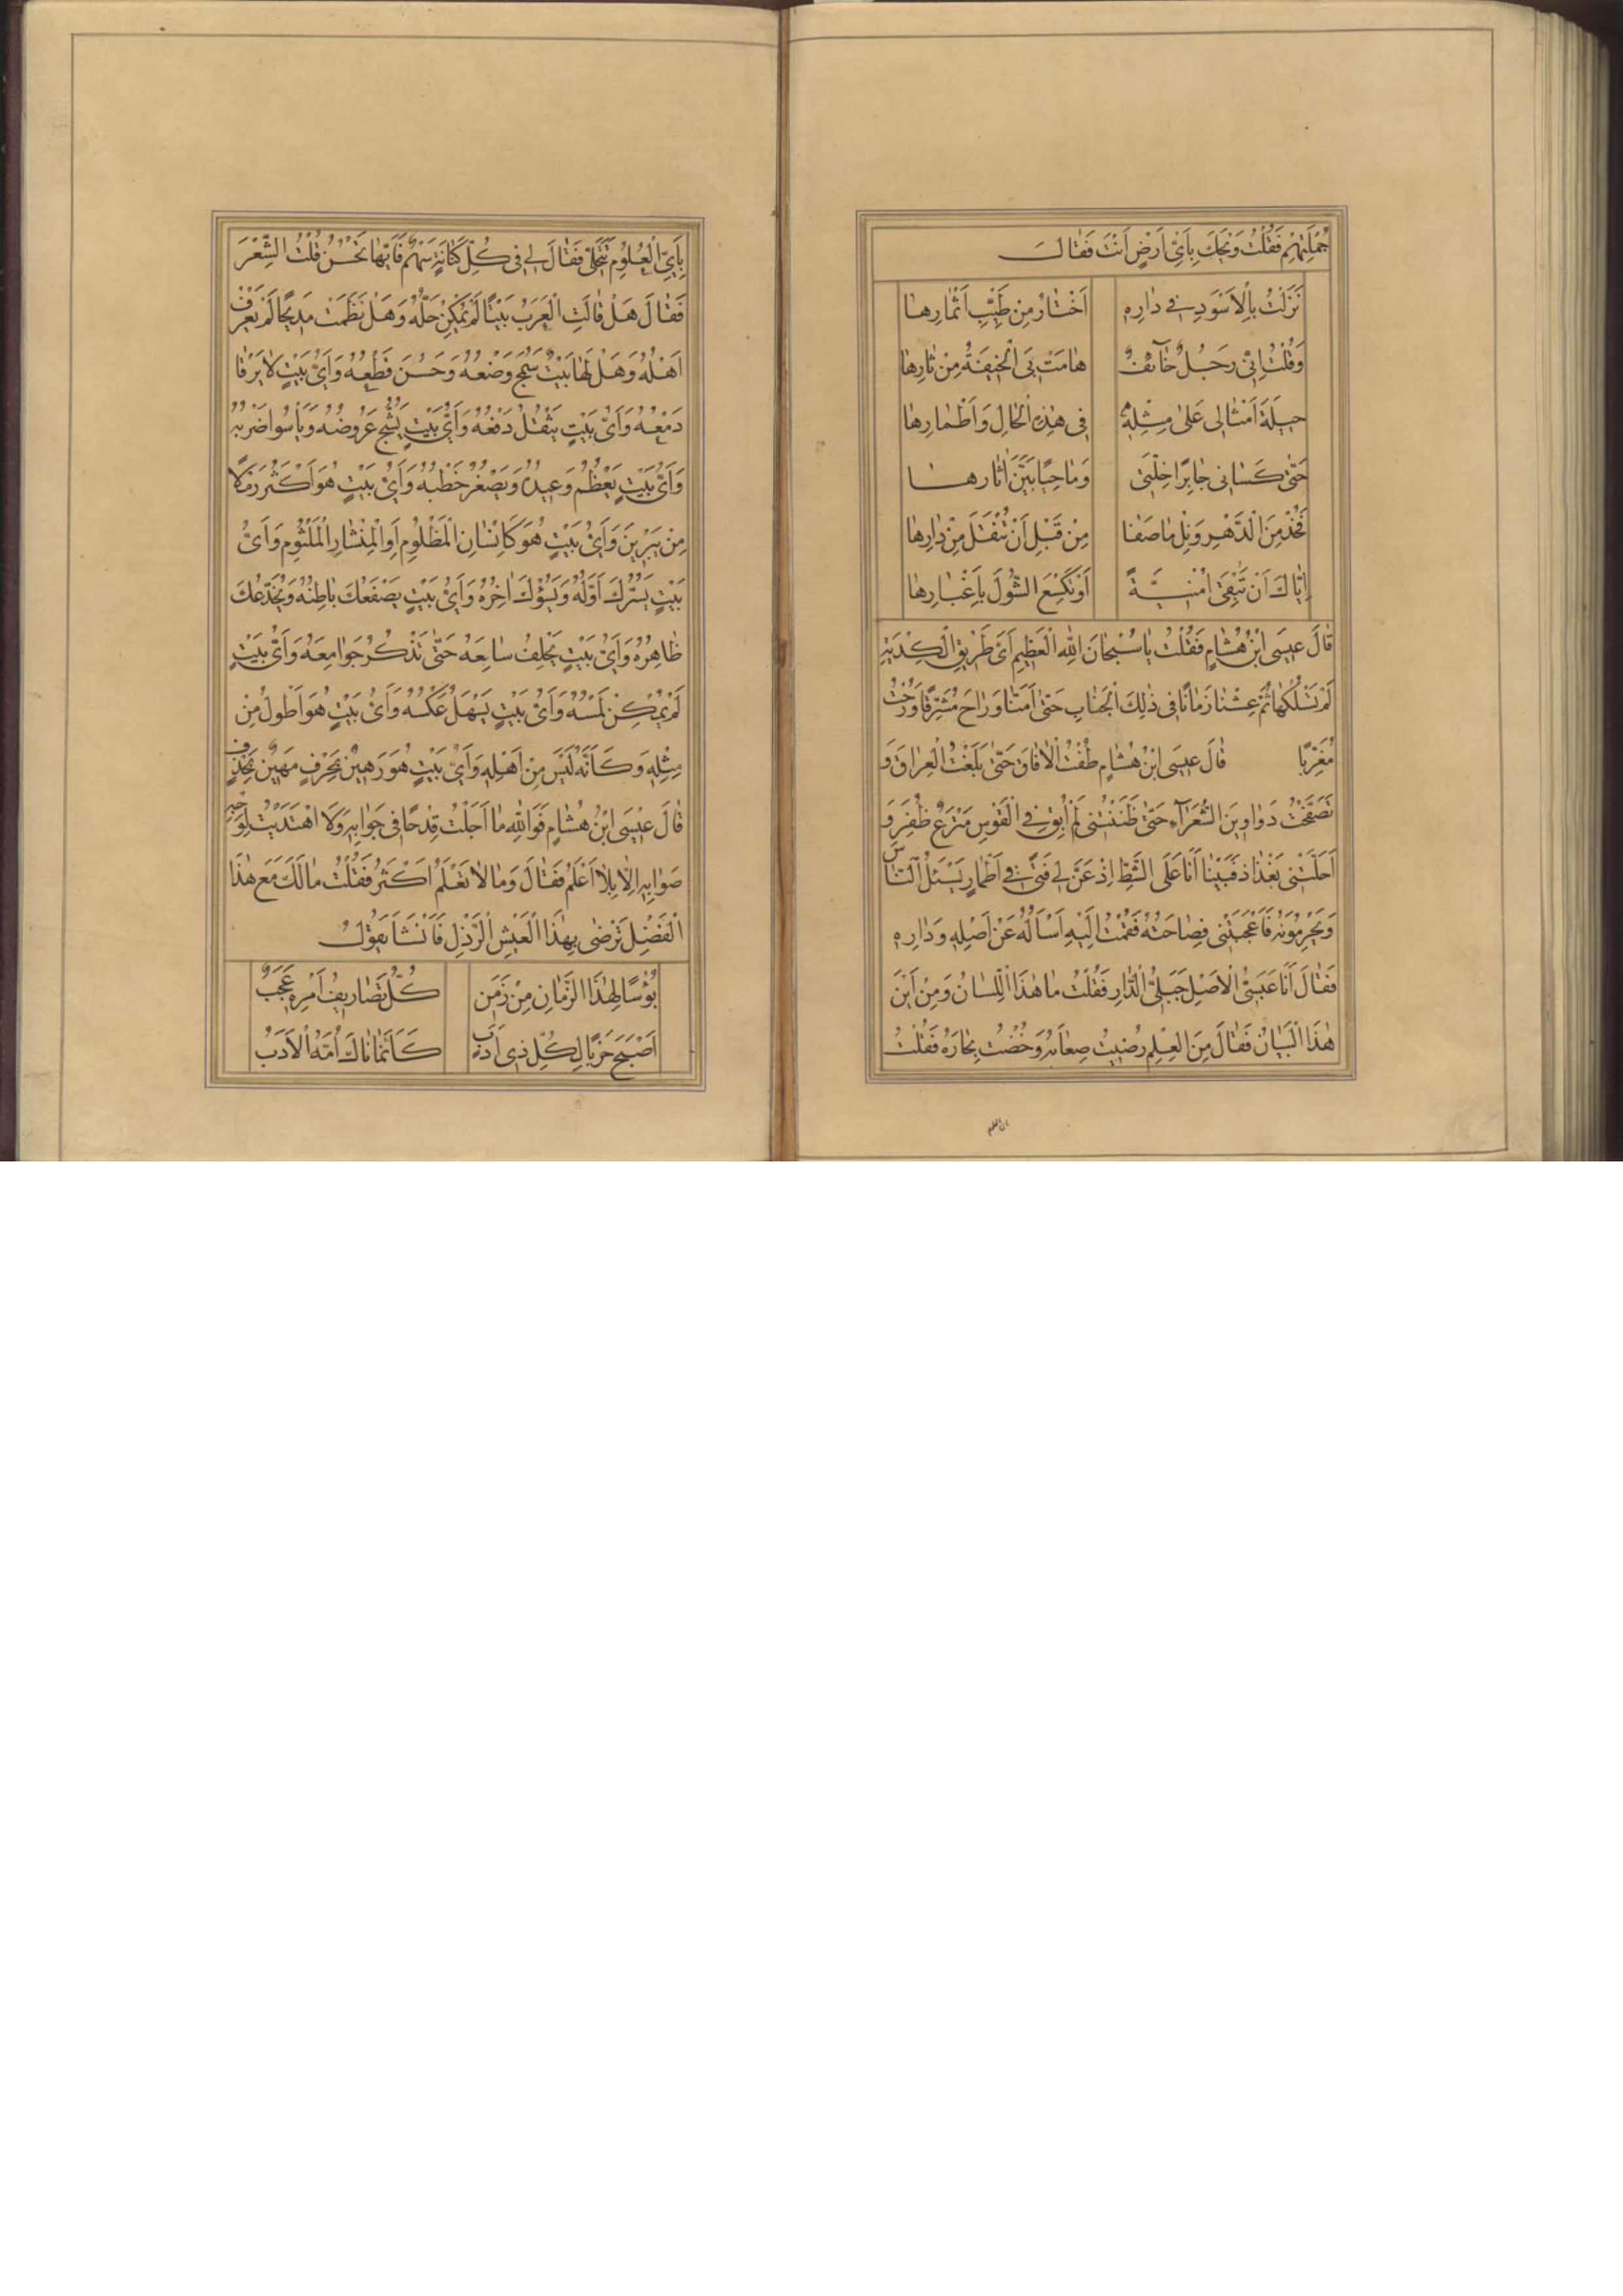 جُمْلَتِهِمْ فَقُلْتُ وَيْحَكَ بِاَيِّ اَرْضٍ اَنْتَ فَقٰالَ
نَزَلْتُ بِالْاَسْوَدِ فى دٰارِهِ اَخْتٰارُ مِنْ طَيِّبِ اَثْمٰارِهٰا
وَقُلْتُ اِنّى رَجُلٌ خٰآئفٌ هٰامَتْ بِىَ الْخيفَةُ مِنْ ثٰارِهٰا
حيلَةَ اَمْثٰالى عَلىٰ مِثْلِهِ فى هٰذِهِ الْحٰالِ وَاَطْمٰارِهٰا
حَتّىٰ كَسٰانى جٰابِرًا خِلَّتى وَمٰاحِيًا بَيَّنَ اٰثٰارِهٰا
فَخُذْ مِنَ الدَّهْرِ وَنِلْ مٰا صَفٰا مِنْ قَبْلِ اَنْ تُنْقَلَ مِنْ دٰارِهٰا
اِيّٰاكَ اَنْ تُبْقِىَ اُمْنِيَّةً اَوْ تَكْسَعَ الشَّوْلَ بِاَغْبٰارِهٰا
قٰالَ عيسَى ابْنُ هُشٰامٍ فَقُلْتُ يٰا سُبْحٰانَ اللهِ الْعَظيمِ اَىَّ طَريقِ الْكِدْيَةِ
لَمْ تَسْلُكْهٰا ثُمَّ عِشْنٰا زَمٰانًا فى ذٰلِكَ الْجَنٰابِ حَتّىٰ اَمِنّٰا وَرٰاحَ مُشَرِّقًا وَرُحْتُ
مُغَرِّبًا قٰالَ عيسَى ابْنُ هُشٰامٍ طُفْتُ الْاٰفٰاقَ حَتّىٰ بَلَغْتُ الْعِرٰاقَ وَ
تَصَفَّحْتُ دَوٰاوينَ الشُّعَرٰآءِ حَتّىٰ ظَنَنْتُنى لَمْ اُبْقِ فى الْقَوْسِ مَنْزَعَ ظُفْرٍ وَ
اَحَلَّتْنى بَغْدٰاذ فَبَيْنٰا اَنَا عَلَى الشَّطِّ اِذْ عَنَّ لى فَتًى فى اَطْمٰارٍ يَسْئَلُ النّٰاسَ
وَيَحْرِمُونَهُ فَاَعْجَبَتْنى فَصٰاحَتُهُ فَقُمْتُ اِلَيْهِ اَسْاَلُهُ عَنْ اَصْلِهِ وَدٰارِهِ
فَقٰالَ اَنَا عَبَسِىُّ الْاَصْلِ جَبَلِىُّ الدّٰارِ فَقُلْتُ مٰا هٰذَا اللِّسٰانُ وَمِنْ اَيْنَ
هٰذَا الْبَيٰانُ فَقٰالَ مِنَ الْعِلْمِ رُضْتُ صِعٰابَهُ وَخُضْتُ بِحٰارَهُ فَقُلْتُ
بِاَىِّ الْعُلُومِ تَتَحَلّىٰ فَقٰالَ لى فى كُلِّ كَنٰانَةٍ سَهْمٌ فَاَيَّهٰا تَحْسُنُ قُلْتُ الشِّعْرَ
فَقٰالَ هَلْ قٰالَتِ الْعَرَبُ بَيْتًا لَمْ يُمْكِنْ حَلُّهُ وَهَلْ نَظَمَتْ مَديحًا لَمْ يُعْرَفْ
اَهْلُهُ وَهَلْ لَهٰا بَيْتٌ سَمُجَ وَضْعُهُ وَحَسُنَ قَطْعُهُ وَاَىُّ بَيْتٍ لٰا يَرْقٰا
دَمْعُهُ وَاَىُّ بَيْتٍ يَثْقُلُ دَفْعُهُ وَاَىُّ بَيْتٍ يَشُجُّ عَرُوضُهُ وَيَاْسُوا ضَرْبُهُ
وَاَىُّ بَيْتٍ يَعْظُمُ وَعيدُهُ وَيَصْغُرُ خَطْبُهُ وَاَىُّ بَيْتٍ هُوَ اَكْثَرُ رَمْلًا
مِنْ يَبْرينَ وَاَىُّ بَيْتٍ هُوَ كَاَسْنٰانِ الْمَظْلُومِ اَوِ الْمِنْشٰارِ الْمَثْلُومِ وَاَىُّ
بَيْتٍ يَسُرُّكَ اَوَّلُهُ وَيَسُؤُكَ اٰخِرُهُ وَاَىُّ بَيْتٍ يَصْفَعُكَ بٰاطِنُهُ وَيُخَدِّعُكَ
ظٰاهِرُهُ وَاَىُّ بَيْتٍ يَحْلِفُ سٰامِعُهُ حَتّىٰ تَذْكُرَ جَوٰامِعَهُ وَاَىُّ بَيْتٍ
لَمْ يُمْكِنْ لَمْسُهُ وَاَىُّ بَيْتٍ يَسْهُلُ عَكْسُهُ وَاَىُّ بَيْتٍ هُوَ اَطْوَلُ مِنْ
مِثْلِهِ وَكَاَنَّهُ لَيْسَ مِنْ اَهْلِهِ وَاَىُّ بَيْتٍ هُوَ رَهينٌ بِحَرْفٍ مَهينٌ بِحَذْفٍ
قٰالَ عيسَى ابْنُ هُشٰامٍ فَوَاللهِ مٰا اَجَلْتُ قِدْحًا فى جَوٰابِهِ وَلَا اهْتَدَيْتُ لِوَجْهِ
صَوٰابِهِ اِلّٰا بِلٰا اَعْلَمُ فَقٰالَ وَمٰا لٰا تَعْلَمُ اَكْثَرُ فَقُلْتُ مٰا لَكَ مَعَ هٰذَا
الْفَضْلِ تَرْضٰى بِهٰذَا الْعَيْشِ الرَّذْلِ فَاَنْشَاَ يَقُولُ
بُؤْسًا لِهٰذَا الزَّمٰانِ مِنْ زَمَنٍ كُلُّ تَصٰاريفِ اَمْرِهِ عَجَبٌ
اَصْبَحَ حَرْبًا لِكُلِّ ذى اَدَبٍ كَاَنَّمٰا نٰاكَ اُمَّهُ الْاَدَبُ